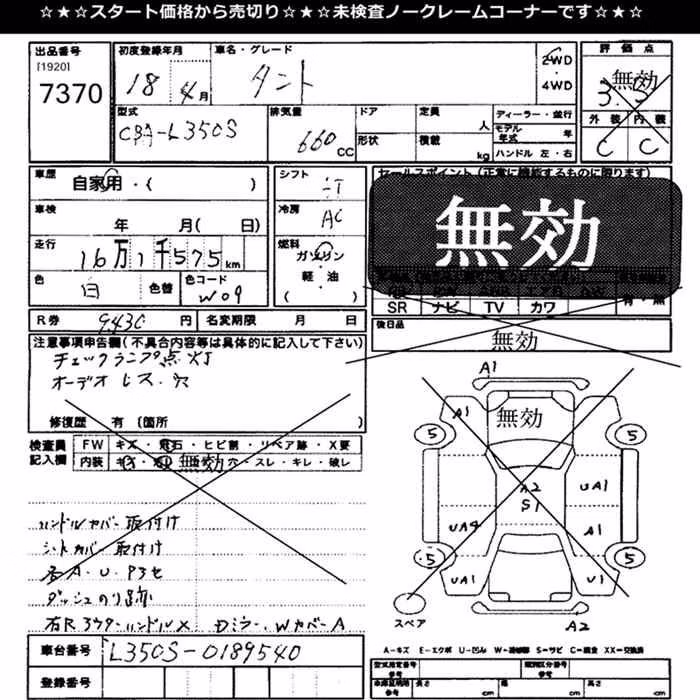 ☆★☆スタート価格から売切り☆★☆未検査ノークレームコーナーです☆★☆
出品番号
[1920]
7370
初度登録年月
18 4月
車名・グレード
タント
2WD
4WD
評価点
無効
3.5
外装 内装
C C
型式
CBA-L350S
排気量
660 CC
ドア
形状
定員
人
積載
kg
ディーラー・並行
モデル年式 年
ハンドル 左・右
車歴
自家用・( )
車検
年 月( 日)
走行
16万1千575km
色
白
色替
色コード
W09
シフト
冷房
AC
燃料
ガソリン
軽・油
( )
セールスポイント (正常に機能するものに限ります)
無効
SR ナビ TV カワ
有・無
後日品
無効
R券 9430 円
名変期限 月 日
注意事項申告欄(不具合内容等は具体的に記入して下さい)
チェックランプ点灯
オーデオレス・穴
修復歴 有 (箇所 )
検査員記入欄
FW キズ・飛石・ヒビ割・リペア跡・X要
内装 無効 穴・スレ・キレ・破レ
ハンドルカバー取付け
シートカバー取付け
各A.U.Pヨセ
ダッシュのり跡
右Rアウターハンドル× Dミラー、WカバーA
車台番号
L350S-0189540
登録番号
A1
A1
無効
5
5
A2
S1
UA1
UA4
A1
5
5
UA1
U1
スペア
A2
A-キズ E-エクボ U-凹み W-補修跡 S-サビ C-腐食 XX-交換済
型式指定番号
類別区分番号
車庫証明用参考
長さ cm
幅 cm
高さ cm